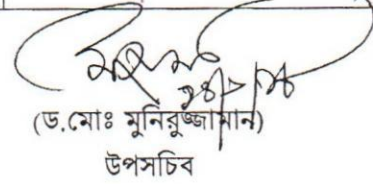 (ড.মোঃ মুনিরুজ্জামান)
উপসচিব